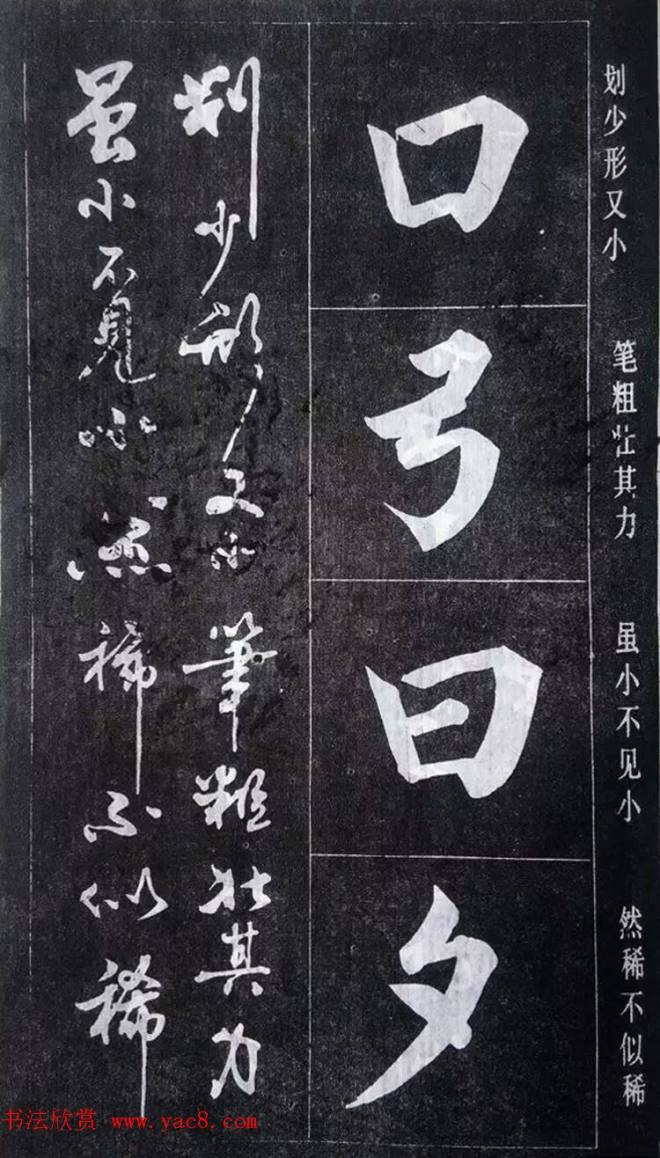 划少形又小 笔粗壮其力 虽小不见小 然稀不似稀
口弓曰夕
划少形又小筆粗壯其力
虽小不見小然稀不似稀
书法欣赏 www.yac8.com